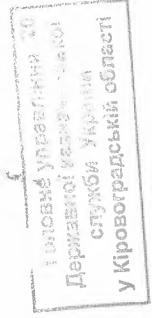 Головне управління
Державної казначейської
служби України
у Кіровоградській області